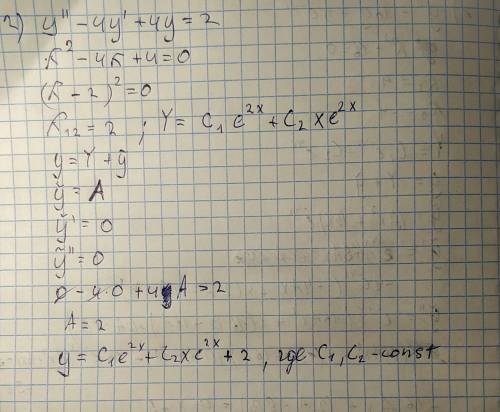 2) y'' - 4y' + 4y = 2
k² - 4k + 4 = 0
(k - 2)² = 0
k₁₂ = 2 ; Y = C₁ e²ˣ + C₂ x e²ˣ
y = Y + ỹ
ỹ = A
ỹ' = 0
ỹ'' = 0
0 - 4·0 + 4A = 2
A = 2
y = C₁e²ˣ + C₂xe²ˣ + 2 , где C₁, C₂ - const